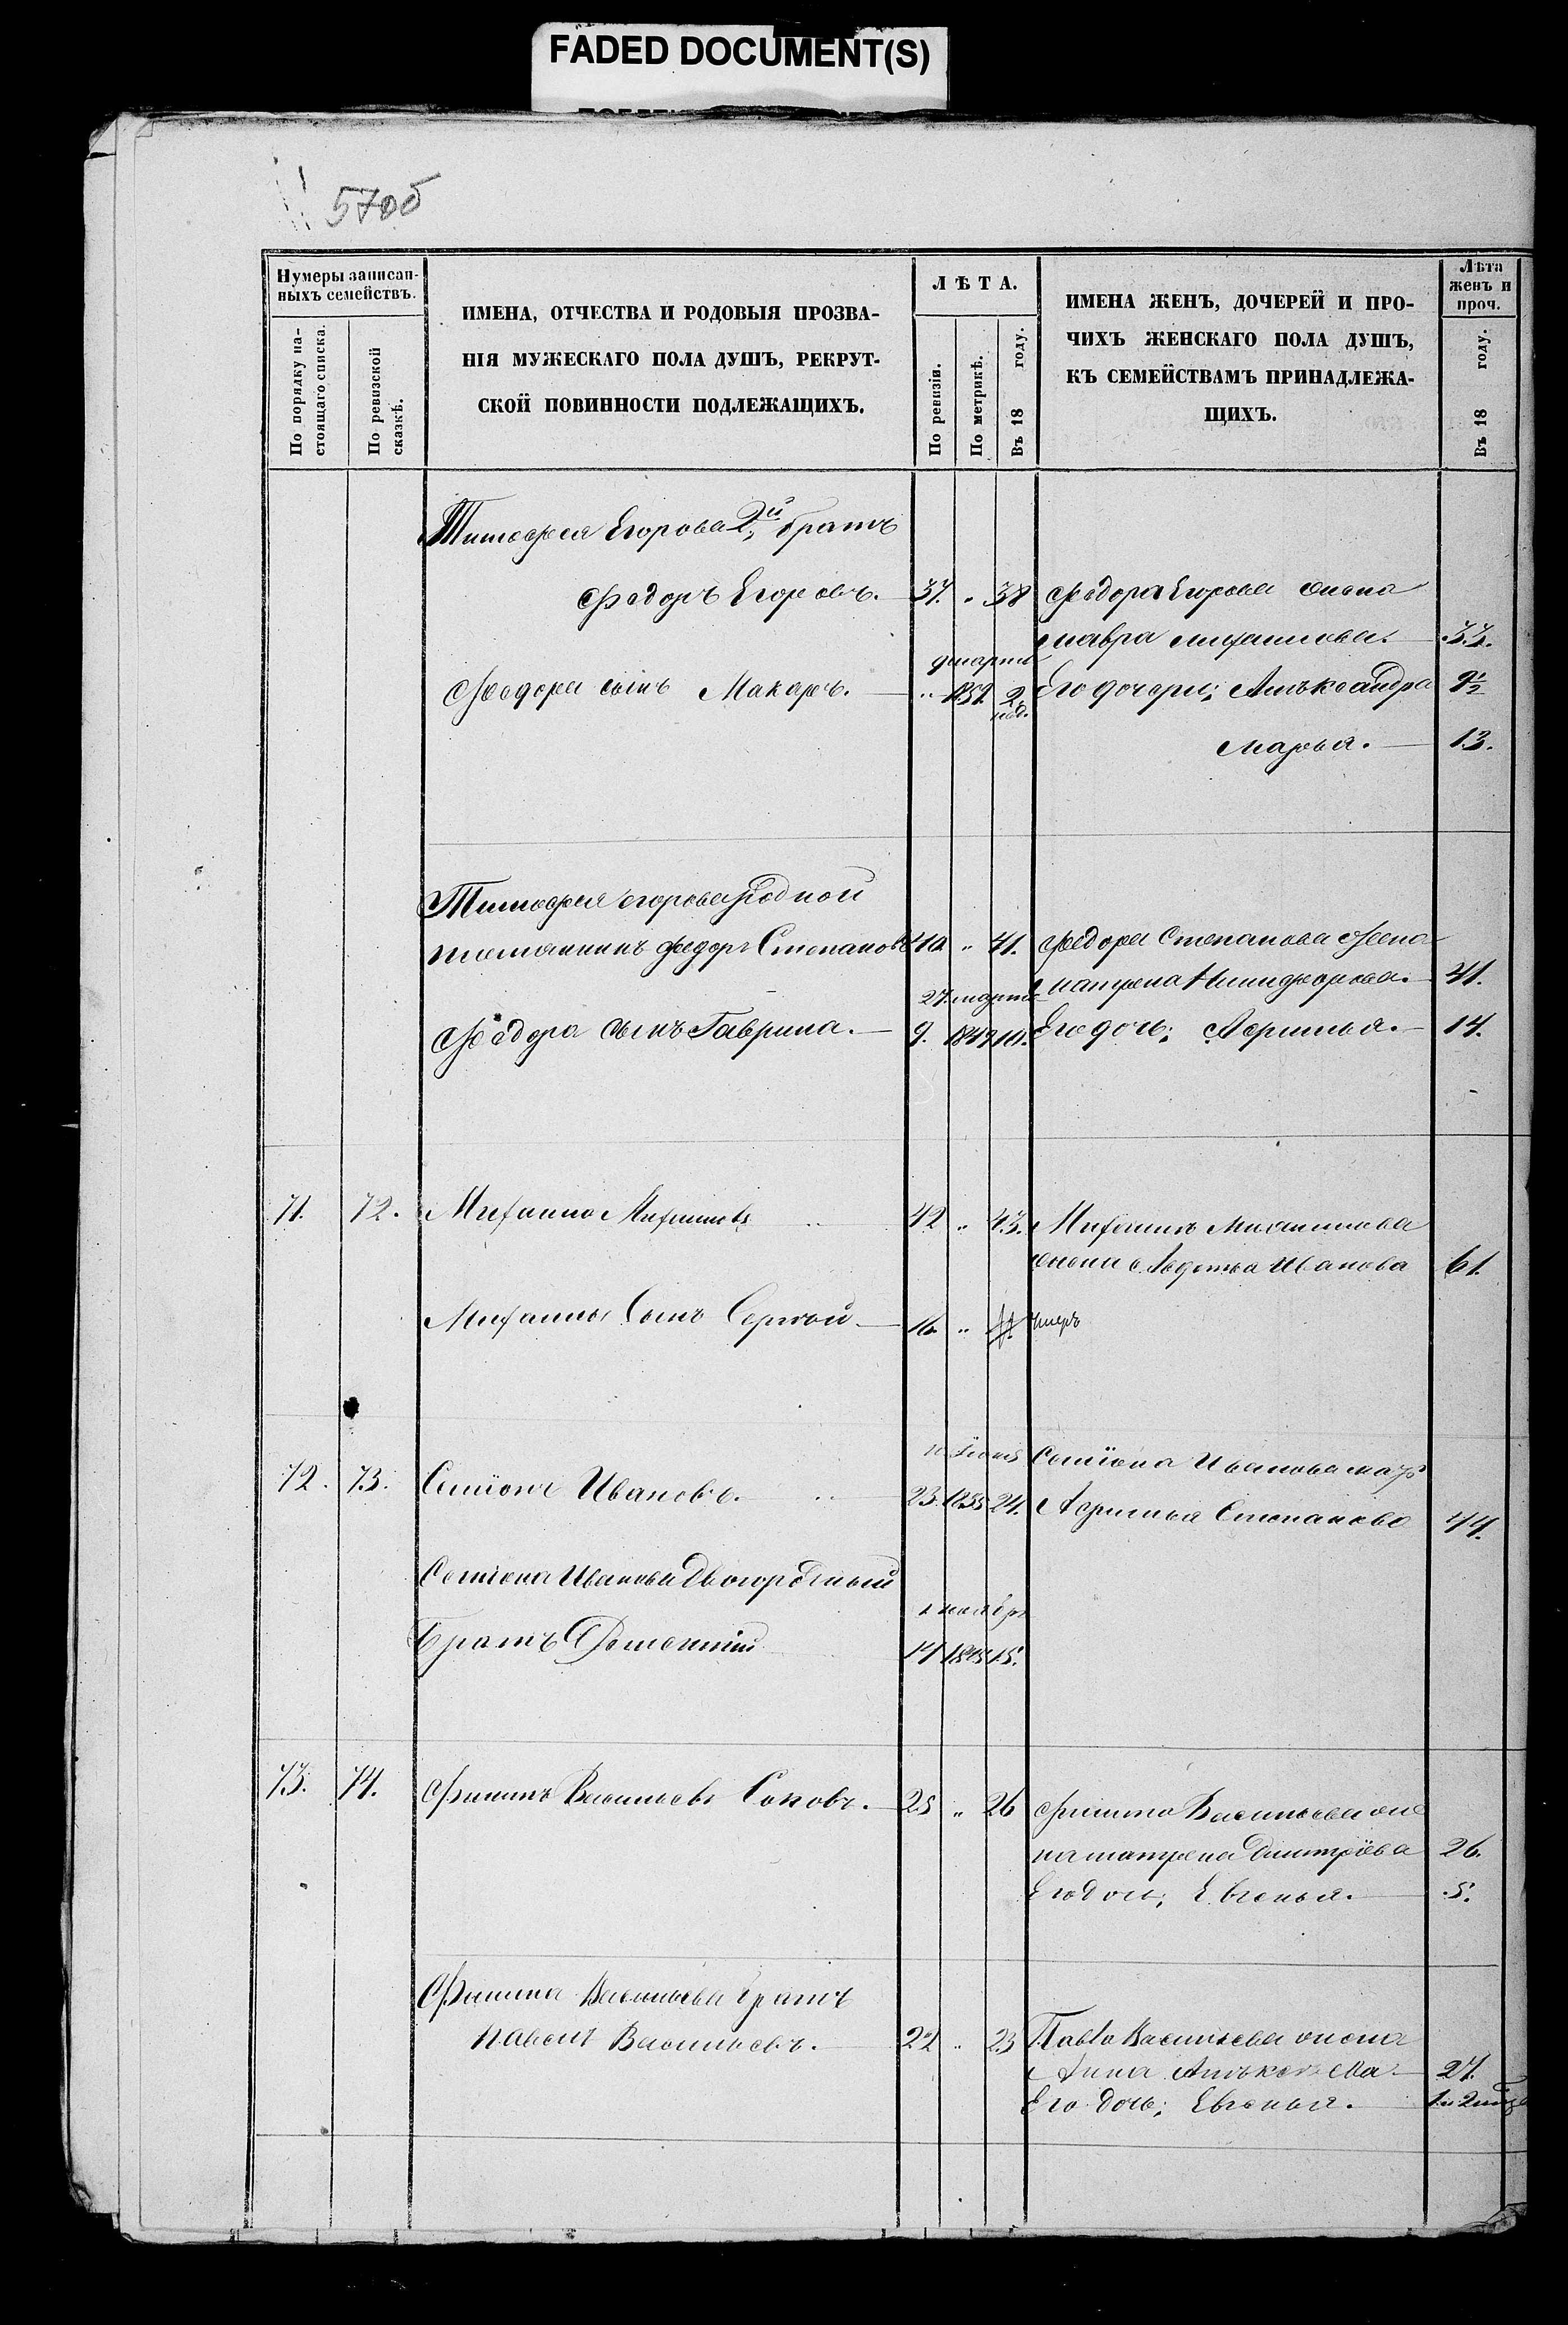 FADED DOCUMENT(S)
570б
Нумеры записан-
ныхъ семействъ.
По порядку на-
стоящаго списка.
По ревизской
сказкѣ.
ИМЕНА, ОТЧЕСТВА И РОДОВЫЯ ПРОЗВА-
НІЯ МУЖЕСКАГО ПОЛА ДУШЪ, РЕКРУТ-
СКОЙ ПОВИННОСТИ ПОДЛЕЖАЩИХЪ.
ЛѢТА.
По ревизіи.
По метрикѣ.
Въ 18 году.
ИМЕНА ЖЕНЪ, ДОЧЕРЕЙ И ПРО-
ЧИХЪ ЖЕНСКАГО ПОЛА ДУШЪ,
КЪ СЕМЕЙСТВАМЪ ПРИНАДЛЕЖА-
ЩИХЪ.
Лѣта
женъ и
проч.
Въ 18 году.
Тимофея Егорова 2й братъ
Федоръ Егоровъ. 37. " 38 Федора Егорова жена
Мавра Михаилова. 33.
Федора сынъ Макаръ. " 2 Его дочери; Альксандра 9½
Марья. 13.
Тимофея Егорова родной
племянникъ Федоръ Степановъ 40. " 41. Федора Степанова жена
Матрена Никифорова. 41.
27. марта
Федора сынъ Гаврила. 9. 1849 10. Его дочь; Афимья. 14.
71. 72. Михаило Михаиловъ 42 " 43. Михаила Михаилова
жена Авдотья Иванова 61.
Михаилы Сынъ Сергей 16. " умеръ
10 Іюня
72. 73. Семіонъ Ивановъ. 23. 24. Семіона Иванова мать
Афимья Степанова 44.
Семіона Иванова Двоюродный
1 ноября
Братъ Дементій 14 15.
73. 74. Филипъ Васильевъ Соповъ. 25 " 26 Филипа Васильева же
на Матрена Дмитріева 26.
Его дочь; Евгенья. 5.
Филипа Васильева братъ
Павелъ Васильевъ. 22 " 23 Павла Васильева жена
Анна 27.
Его дочь; Евгенья.